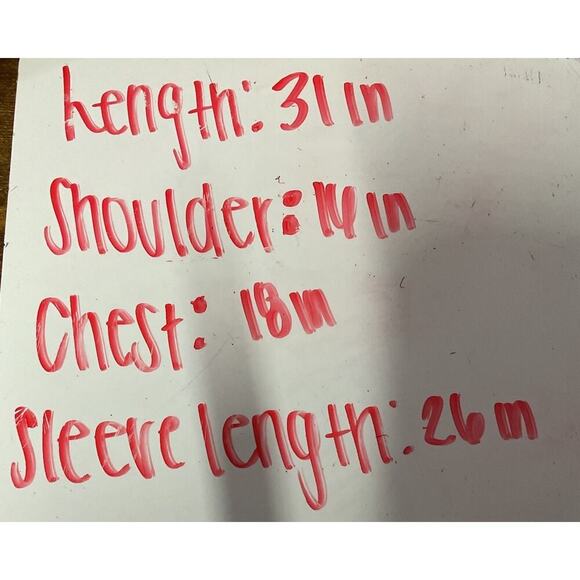 Length: 31 in
Shoulder: 14 in
Chest: 18 in
Sleeve length: 26 in